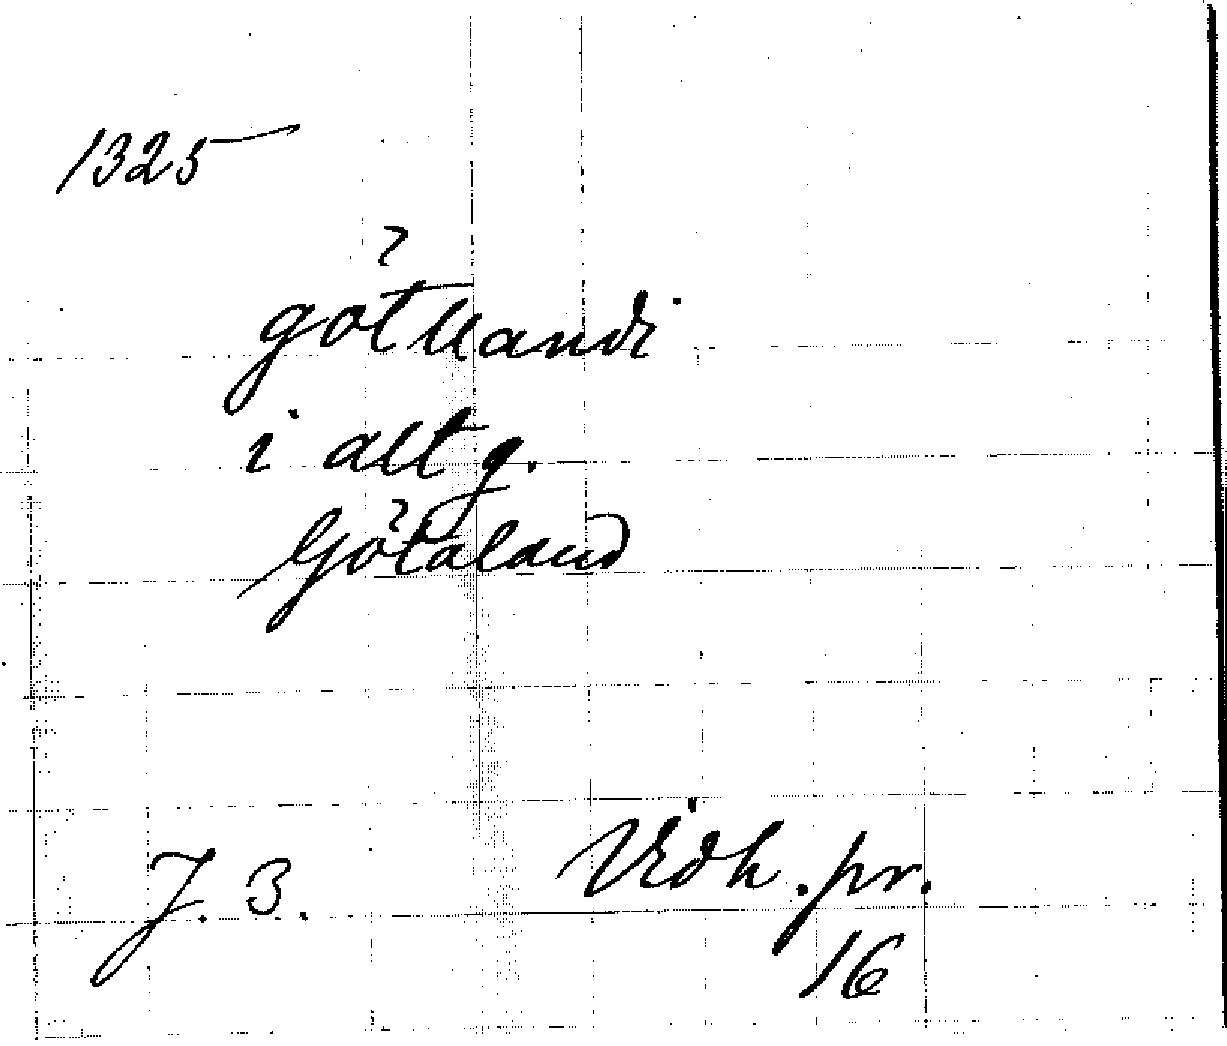 1325
götlandi
i allt g.
Götaland
J. 3.
Vidh. pr.
16